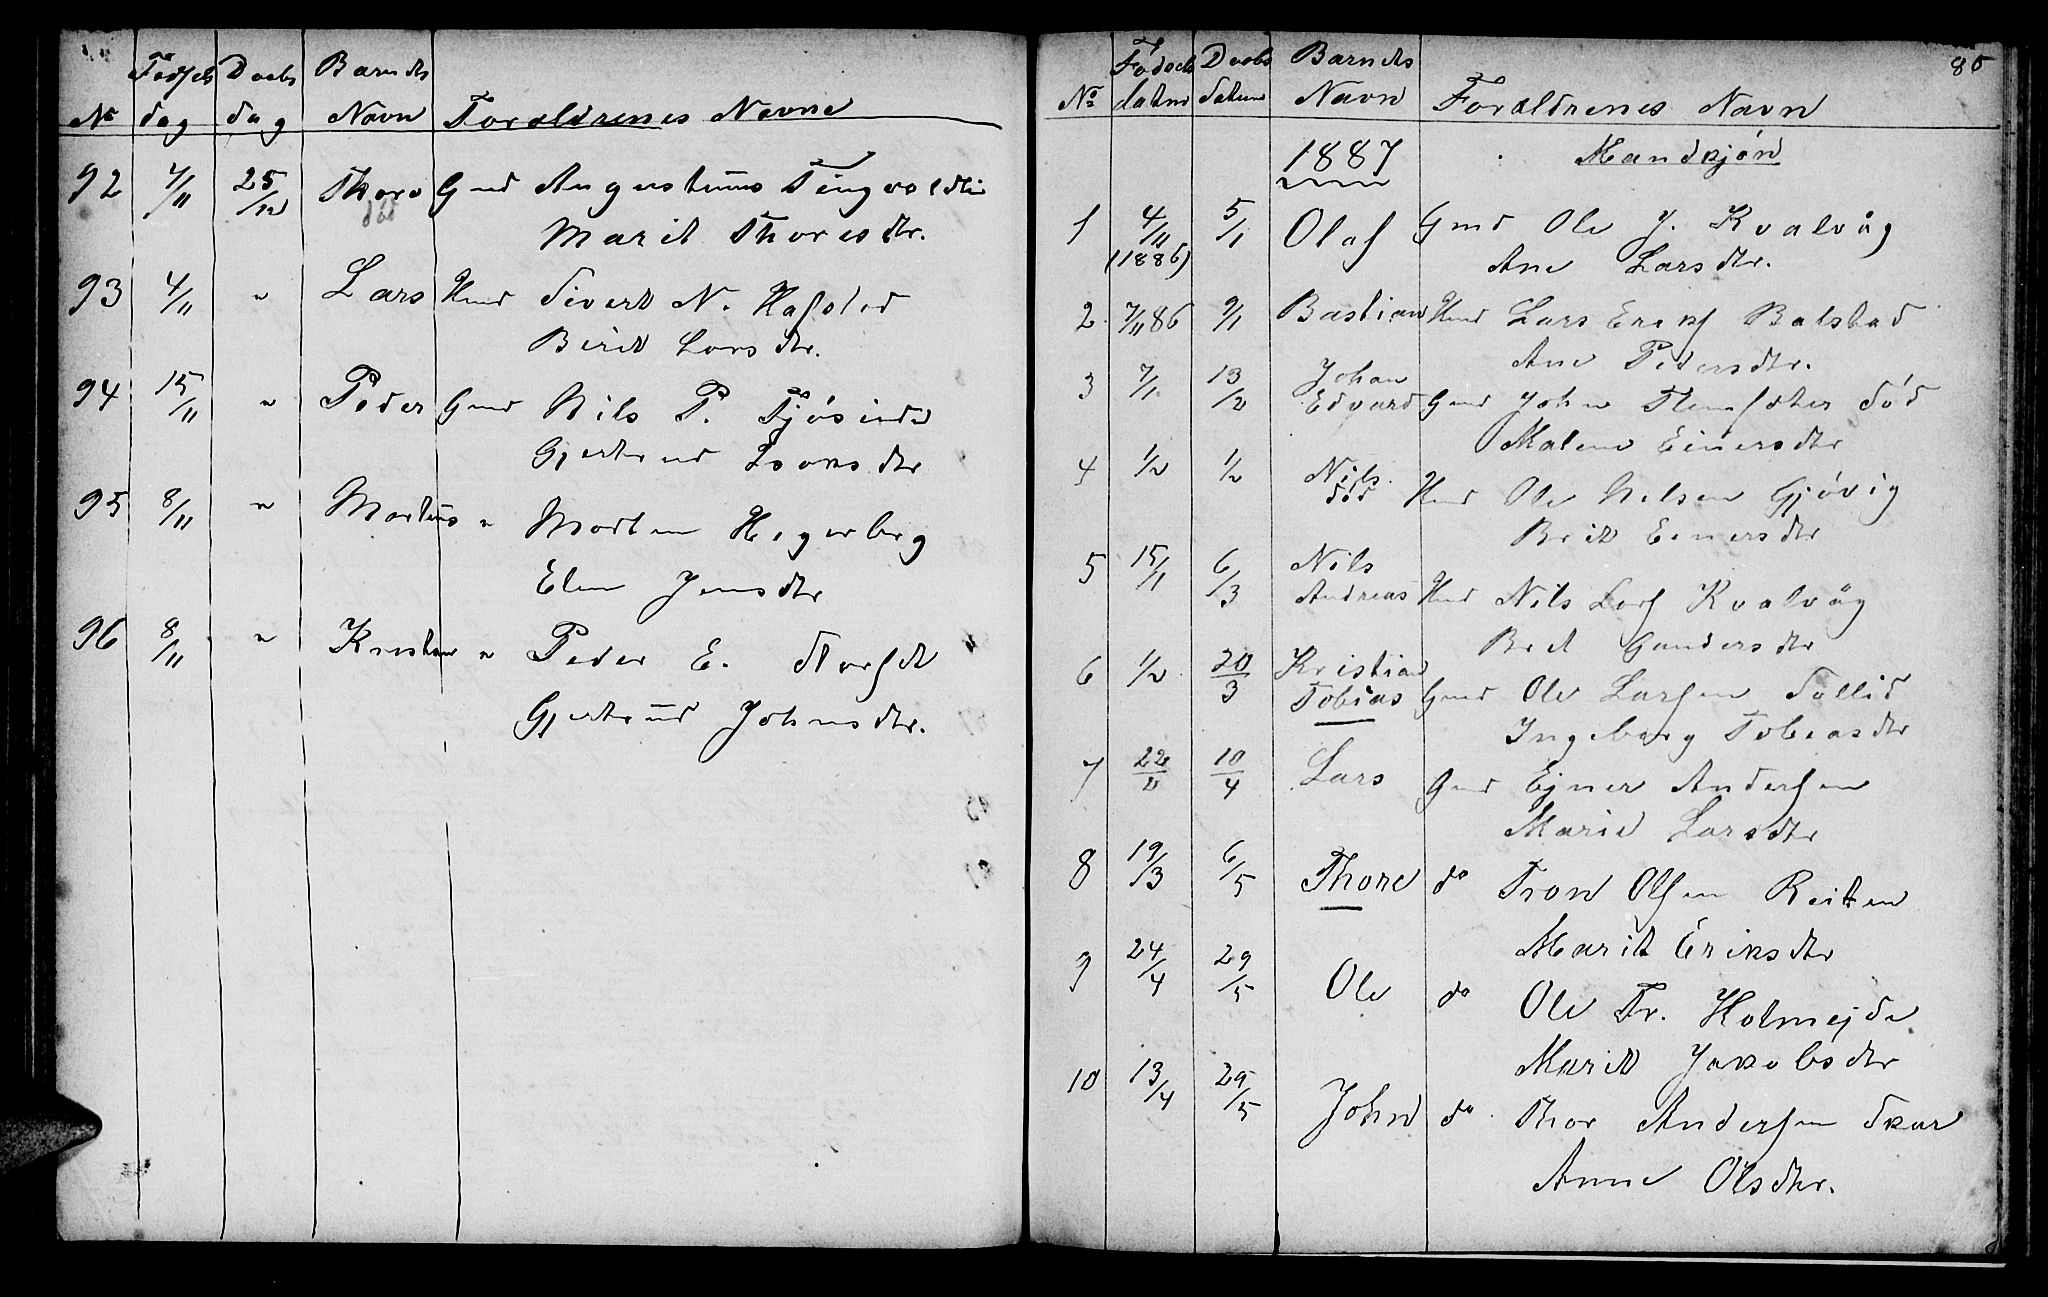 Fødsels Daabs Barnets
No dag dag Navn Forældrenes Navne
92 7/11 25/12 Thore Gmd Augustinus Tingvoldlie
død Marit Thoresdtr.
93 4/11 " Lars Hmd Sivert N. Hafsted
Berit Larsdtr.
94 15/11 " Peder Gmd Nils P. Tjøsinde
Gjertrud Isaksdtr
95 8/11 " Martinus " Morten Hegerberg
Elen Jensdtr
96 8/11 " Kristian " Peder E.
Gjertrud Johnsdtr.
80
Fødsels Daabs Barnets
No datum datum Navn Forældrenes Navn
1887 Mandkjøn
1 4/11 5/1 Olaf Gmd Ole J. Kvalvåg
(1886) Ane Larsdtr.
2 7/11 86 9/1 Bastian Hmd Lars Eriks Batstad
Ane Pedersdtr.
3 7/1 13/2 Johan
Edvard Gmd John død
Malene Einersdtr
4 1/2 1/2 Nils
død Hmd Ole Nilsen Gjøvig
Brit Einersdtr
5 15/1 6/3 Nils
Andreas Hmd Nils Lars Kvalvåg
Brit Gundersdtr
6 1/2 20/3 Kristian
Tobias Gmd Ole Larsen Sollid
Ingeborg Tobiasdtr
7 22/2 10/4 Lars Gmd Ejner Andersen
Marie Larsdtr
8 19/3 6/5 Thore do Tron Olsen Reiten
Marit Eriksdtr
9 24/4 29/5 Ole do Ole Tr. Holmejde
Marit Jakobsdtr
10 13/4 29/5 John do Thor Andersen Skar
Anne Olsdtr.